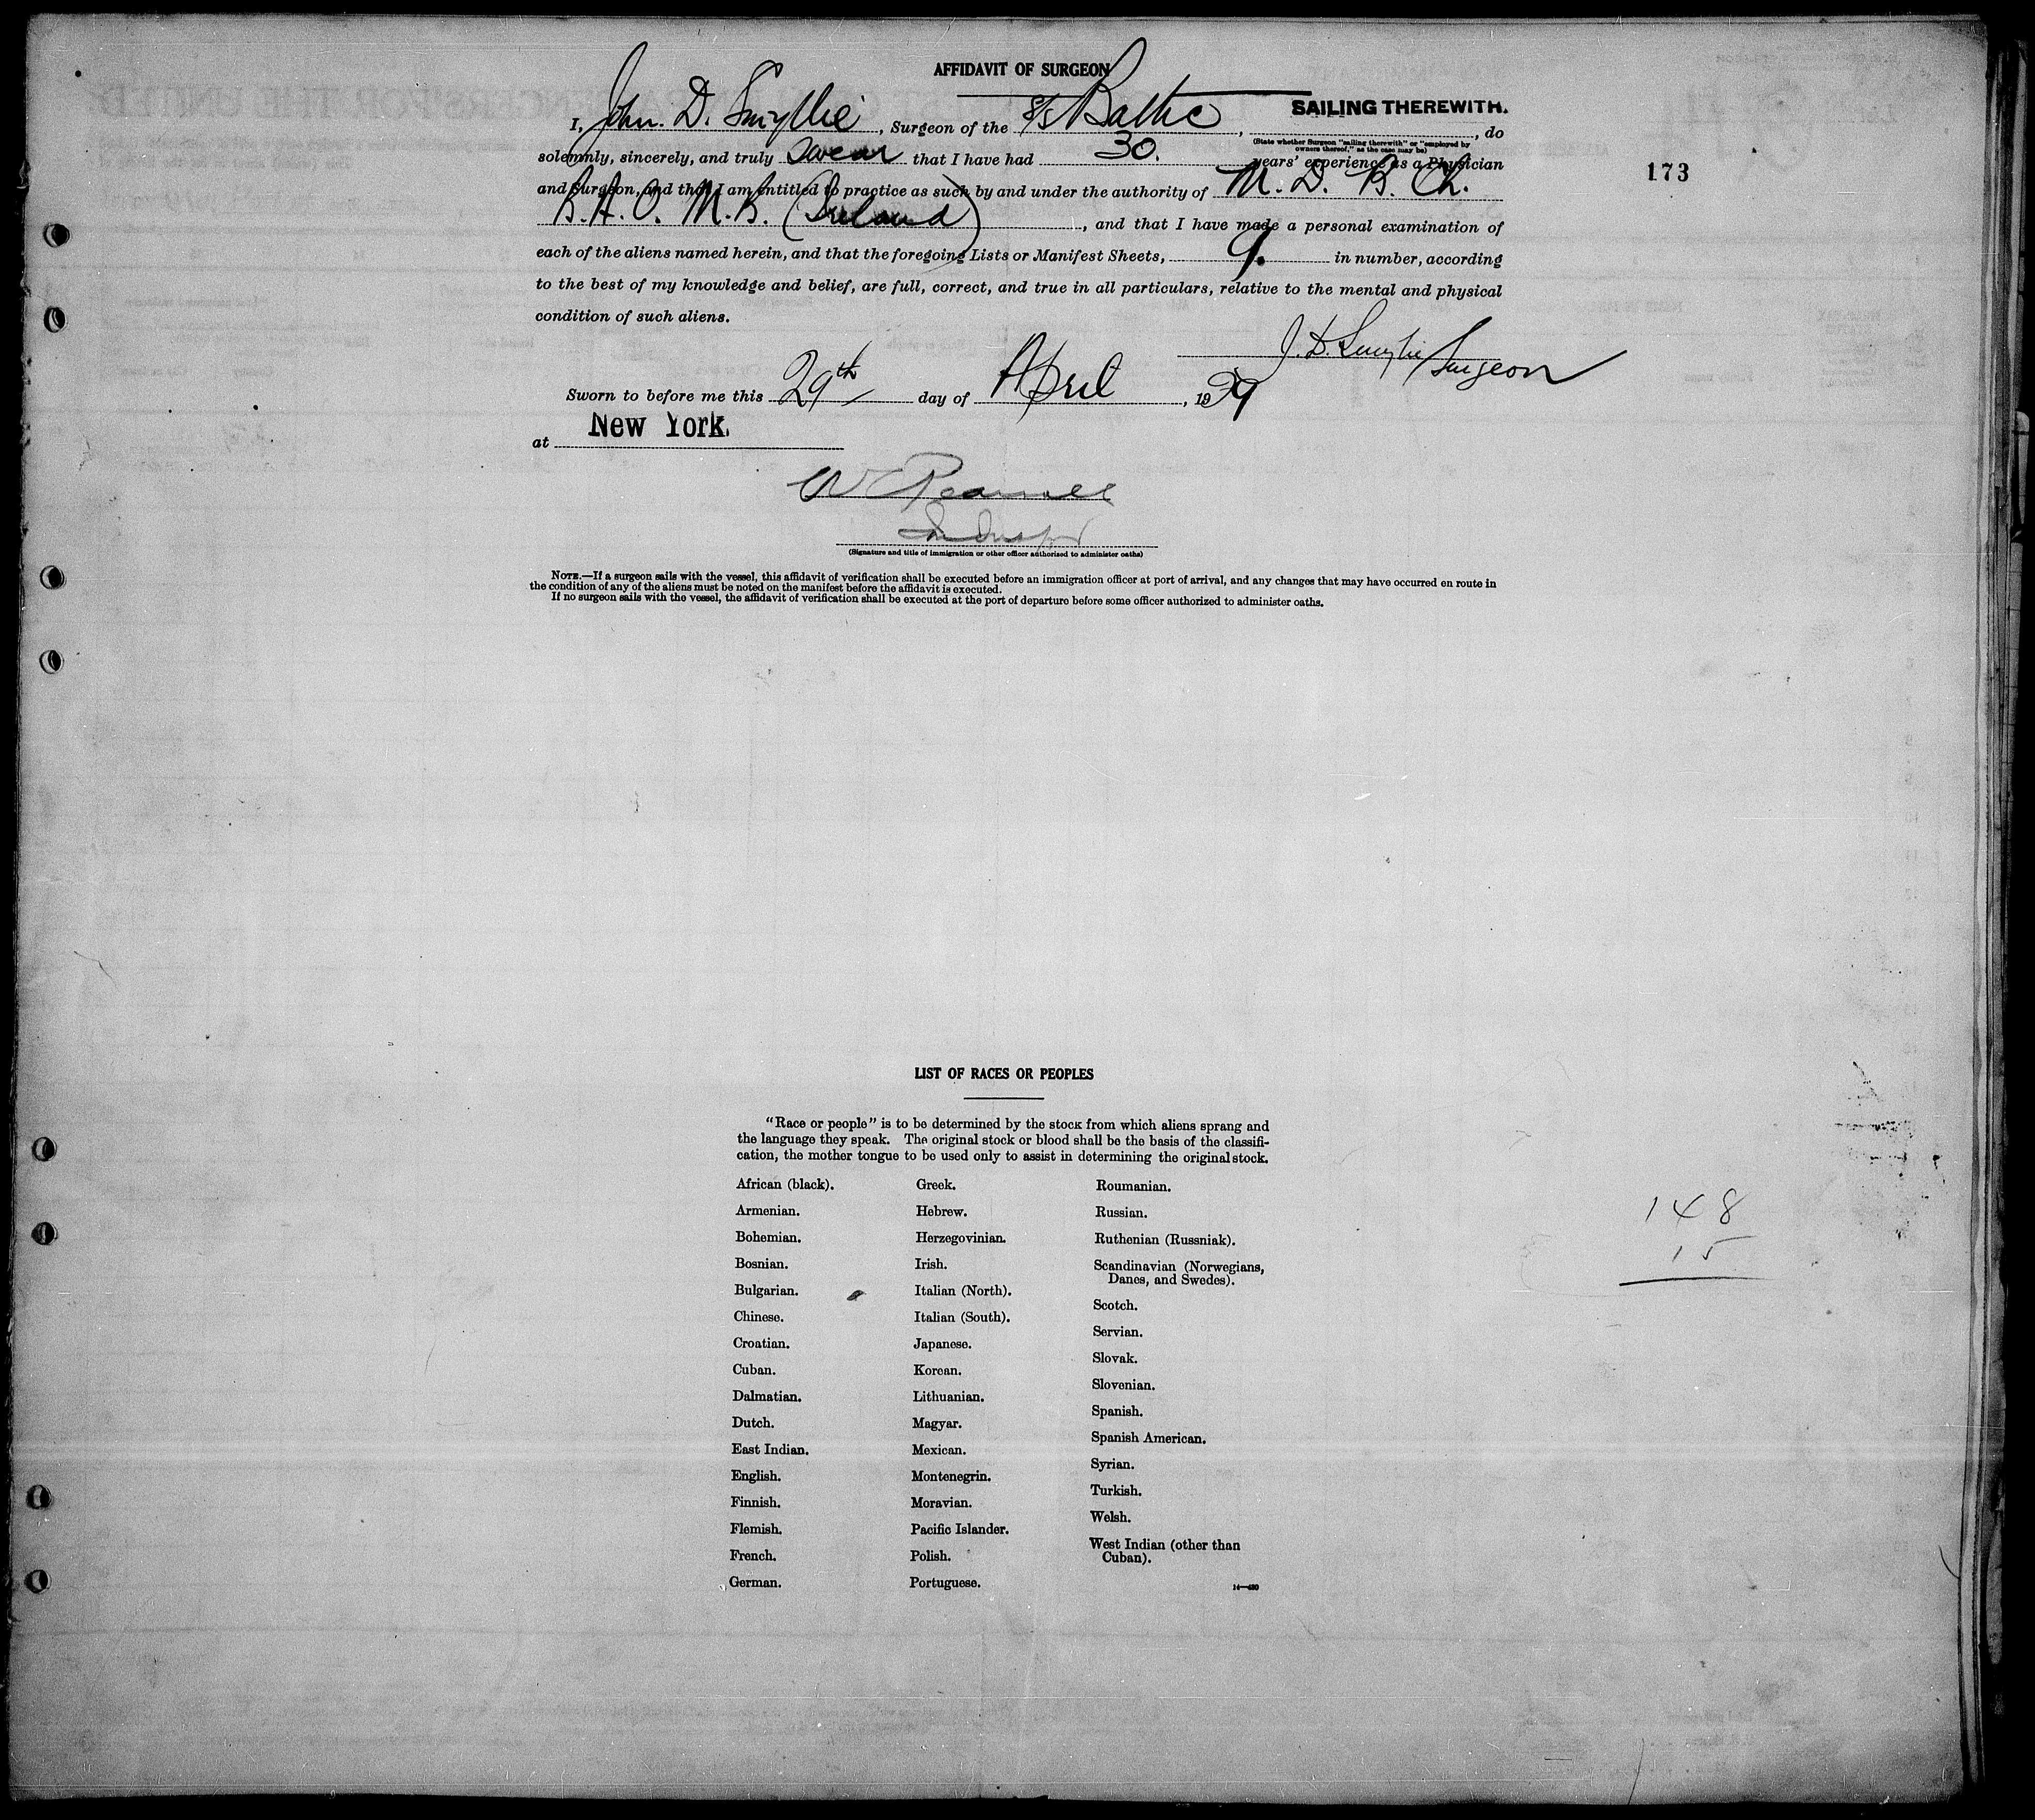 AFFIDAVIT OF SURGEON
SAILING THEREWITH.
I, John. D. Smyllie, Surgeon of the S/S Baltic, , do
(State whether Surgeon "sailing therewith" or "employed by
owners thereof," as the case may be)
solemnly, sincerely, and truly swear that I have had 30. years' experience as a Physician
173
and Surgeon, and that I am entitled to practice as such by and under the authority of M. D. B. Ch.
B. A. O. M. B. (Ireland), and that I have made a personal examination of
each of the aliens named herein, and that the foregoing Lists or Manifest Sheets, 9. in number, according
to the best of my knowledge and belief, are full, correct, and true in all particulars, relative to the mental and physical
condition of such aliens.
J. D. Smyllie Surgeon
Sworn to before me this 29th day of April, 19
at New York.
(Signature and title of immigration or other officer authorized to administer oaths)
NOTE.—If a surgeon sails with the vessel, this affidavit of verification shall be executed before an immigration officer at port of arrival, and any changes that may have occurred en route in
the condition of any of the aliens must be noted on the manifest before the affidavit is executed.
If no surgeon sails with the vessel, the affidavit of verification shall be executed at the port of departure before some officer authorized to administer oaths.
LIST OF RACES OR PEOPLES
"Race or people" is to be determined by the stock from which aliens sprang and
the language they speak. The original stock or blood shall be the basis of the classifi-
cation, the mother tongue to be used only to assist in determining the original stock.
African (black).
Armenian.
Bohemian.
Bosnian.
Bulgarian.
Chinese.
Croatian.
Cuban.
Dalmatian.
Dutch.
East Indian.
English.
Finnish.
Flemish.
French.
German.
Greek.
Hebrew.
Herzegovinian.
Irish.
Italian (North).
Italian (South).
Japanese.
Korean.
Lithuanian.
Magyar.
Mexican.
Montenegrin.
Moravian.
Pacific Islander.
Polish.
Portuguese.
Roumanian.
Russian.
Ruthenian (Russniak).
Scandinavian (Norwegians,
Danes, and Swedes).
Scotch.
Servian.
Slovak.
Slovenian.
Spanish.
Spanish American.
Syrian.
Turkish.
Welsh.
West Indian (other than
Cuban).
14—430
148
15